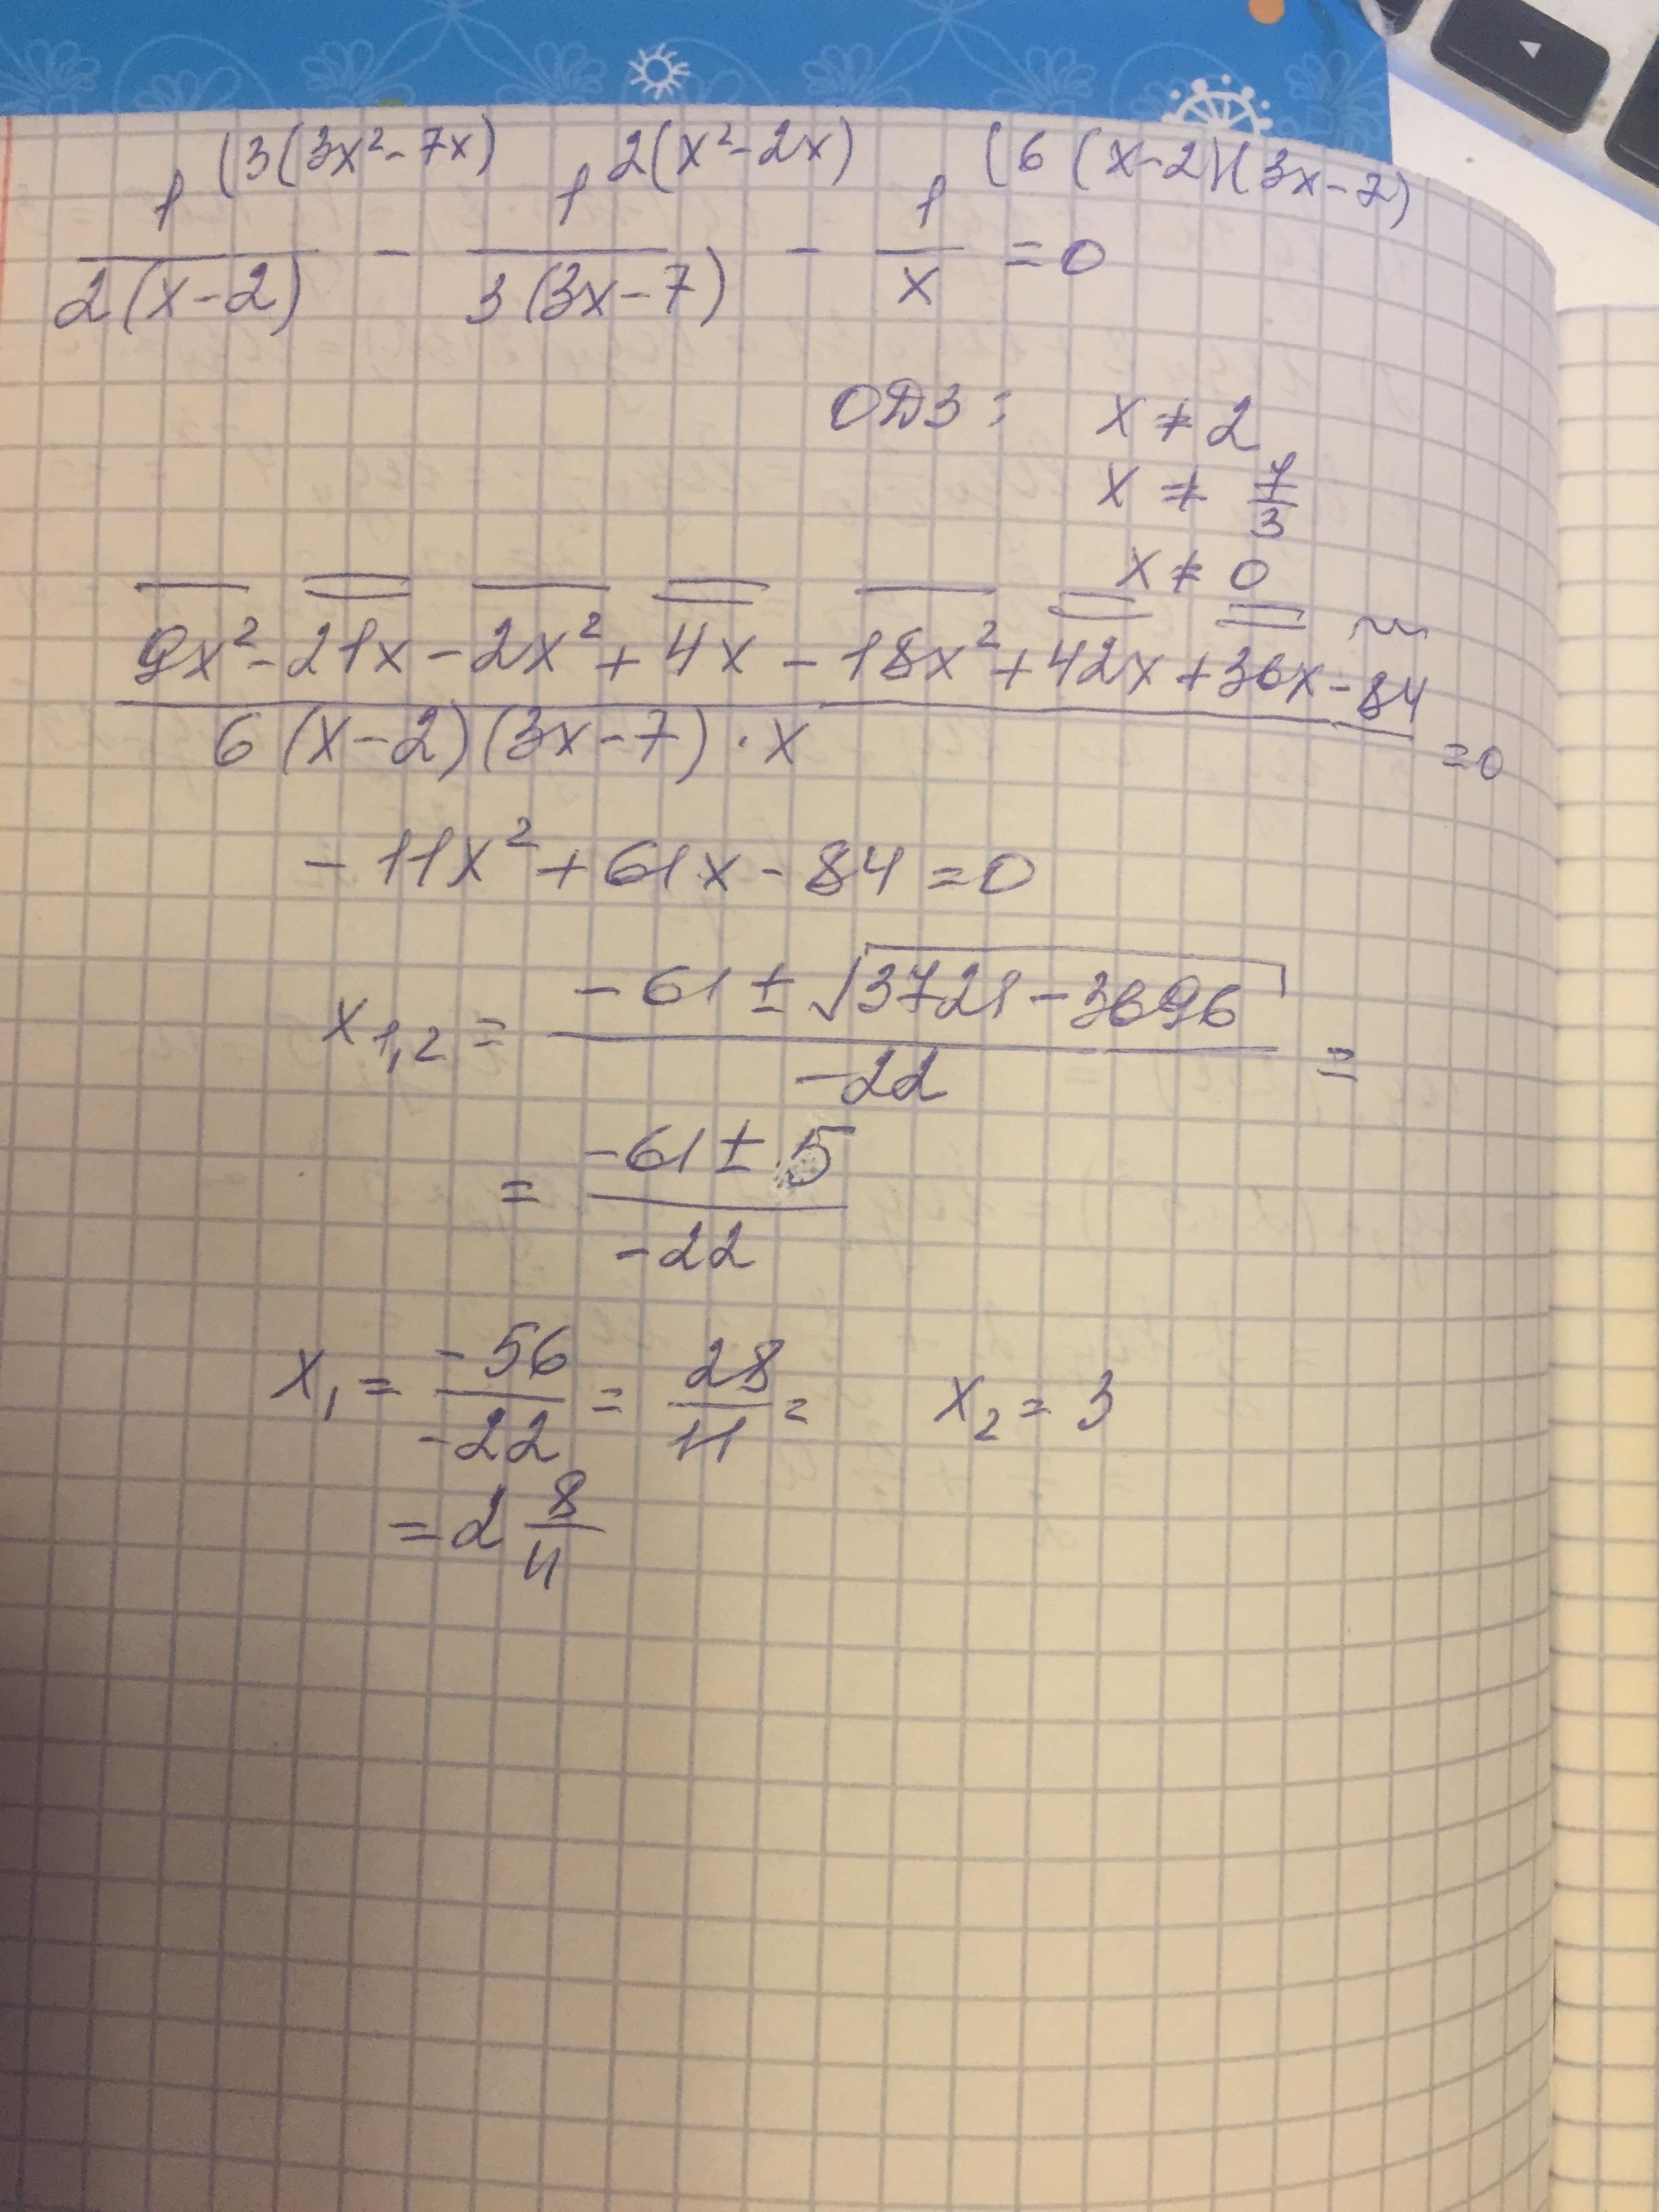 1 (3(3x²-7x) 1 2(x²-2x) 1 (6(x-2)(3x-7)
2(x-2) - 3(3x-7) - x =0
ОДЗ: x≠2
x≠7/3
x≠0
9x²-21x-2x²+4x-18x²+42x+36x-84
6(x-2)(3x-7)·x =0
-11x²+61x-84=0
x1,2 = -61±√3721-3696 / -22 =
= -61±5 / -22
x1 = -56/-22 = 28/11 = x2=3
=2 8/11